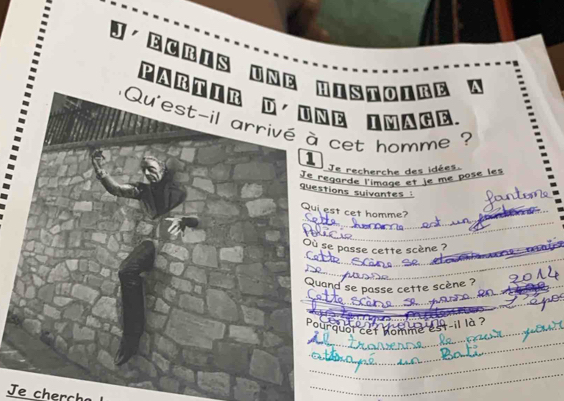 J'ECRIS UNE HISTOIRE A
PARTIR D'UNE IMAGE.
Qu'est-il arrivé à cet homme ?
1 Je recherche des idées.
Je regarde l'image et je me pose les
questions suivantes :
Qui est cet homme?
fantome
Cette homme est un
Policie
Où se passe cette scène ?
Cette scène se
se passe
Quand se passe cette scène ?
2014
Cette scène se passe en
L'épo
Contemporaine
Pourquoi cet homme est-il là ?
il traverse le mur pour
attrapé un Bati
Je cherche